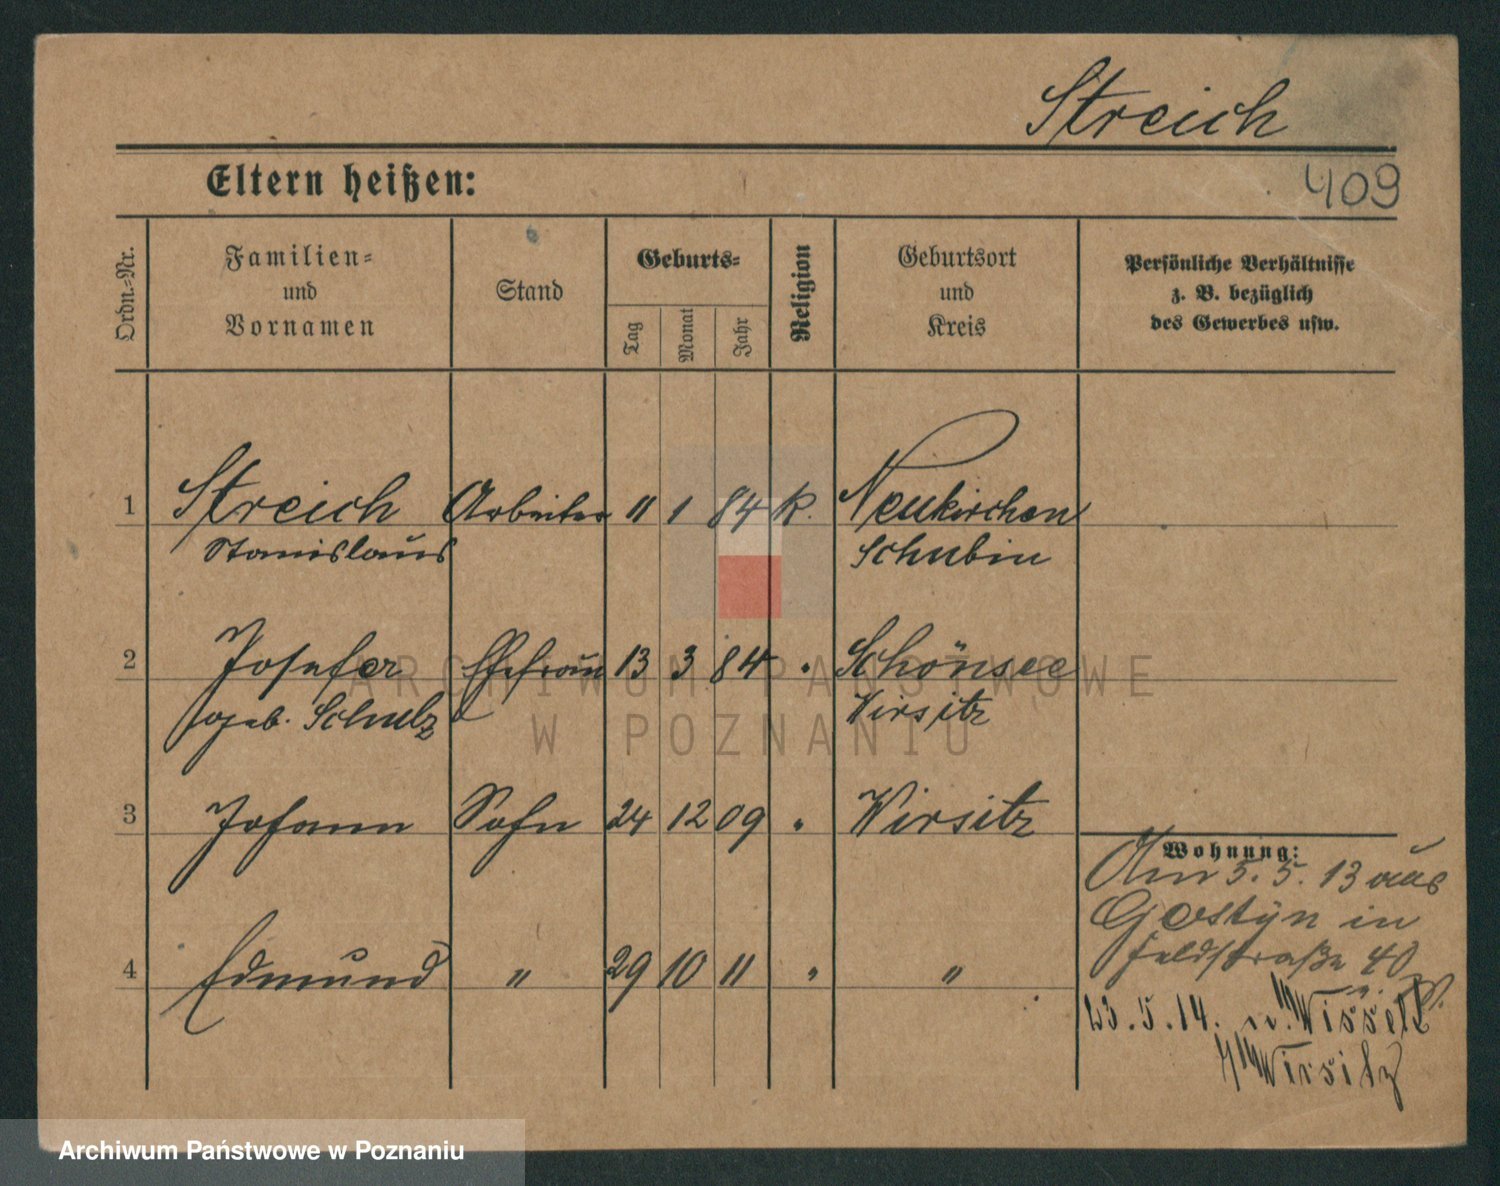 Streich
Eltern heißen:
409
Ordn.=Nr.
Familien=
und
Vornamen
Stand
Geburts=
Tag
Monat
Jahr
Religion
Geburtsort
und
Kreis
Persönliche Verhältnisse
z. B. bezüglich
des Gewerbes usw.
1 Streich Arbeiter 11 1 84 K. Neukirchen
Stanislaus Schubin
2 Josefa Ehefrau 13 3 84 " Schönsee
geb. Schulz Wirsitz
3 Johann Sohn 24 12 09 " Wirsitz
Wohnung:
Am 5. 5. 13 aus
Gostyn in
Feldstraße 40
4 Edmund " 29 10 11 " "
23. 5. 14. n. Wissek
Wirsitz
ARCHIWUM PAŃSTWOWE
W POZNANIU
Archiwum Państwowe w Poznaniu